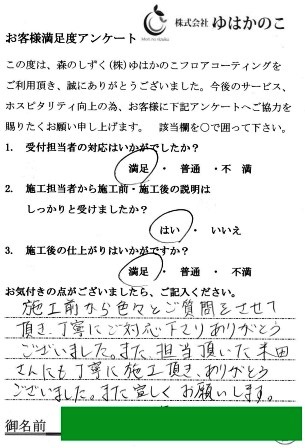 株式会社 ゆはかのこ
お客様満足度アンケート
この度は、森のしずく(株)ゆはかのこフロアコーティングを
ご利用頂き、誠にありがとうございました。今後のサービス、
ホスピタリティ向上の為、お客様に下記アンケートへご協力を
賜りたくお願い申し上げます。 該当欄を○で囲って下さい。
1. 受付担当者の対応はいかがでしたか?
満足 ・ 普通 ・ 不満
2. 施工担当者から施工前・施工後の説明は
しっかりと受けましたか?
はい ・ いいえ
3. 施工後の仕上がりはいかがですか?
満足 ・ 普通 ・ 不満
お気付きの点がございましたら、ご記入ください。
施工前から色々とご質問をさせて
頂き、丁寧にご対応下さりありがとう
ございました。また、担当頂いた米田
さんにも丁寧に施工頂き、ありがとう
ございました。また宜しくお願いします。
御名前